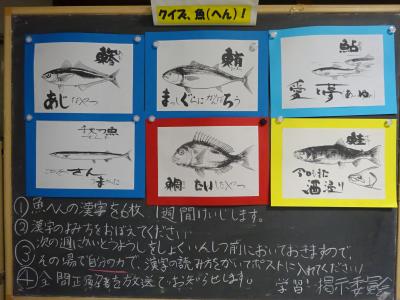 クイズ、魚(へん)!
鰺
あじ
鮪
まっしぐらにがんばろう
鮎
愛と夢
さんま
鯛
たい
鮭
①魚へんの漢字を6枚 1週間けいじします。
②漢字のよみ方をおぼえてください
③次の週にかいとうようしをしょくいんしつ前においておきますので、
その場で自分の力で、漢字の読み方をかいてポストに入れてください!
④全問正解者を放送でお知らせします。
学習!掲示委員会